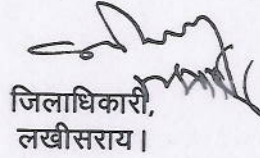 जिलाधिकारी,
लखीसराय।